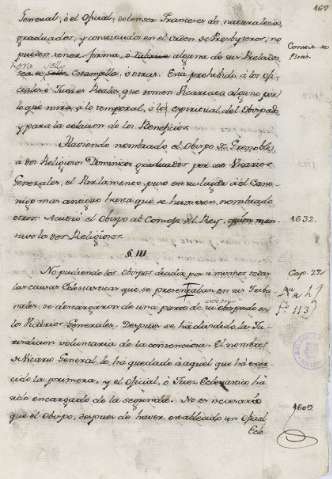 169
General, ó el Oficial, deben ser Franceses de naturaleza,
graduados, y constituidos en el orden de Presbyteros; no
pueden tener firma, ó alguna de su Prelado,
Estampilla, ú otras. Está prohibido á los
Jueces Reales, que tomen Vicarias alguno por
lo que mira, a lo temporal, ó espiritual del Obispado,
y para la colacion de los Beneficios.
Haviendo nombrado el Obispo de Grenoble,
á dos Religiosos Dominicos graduados por sus Vicarios
Generales, el Parlamento puso en su lugar á el Cano-
nigo mas antiguo hasta que se huviesen nombrado
otros. Acudió el Obispo al Consejo del Rey, quien man-
tuvo los dos Religiosos.
1632.
§ III
No pudiendo los Obispos decidir por si mismos todas
las causas Eclesiasticas que se presentaban en su Tribu-
nal, se descargaron de una parte de su
los Vicarios Generales. Despues se ha dividido la Ju-
risdiccion voluntaria de la contenciosa. El nombre
de Vicario General, le ha quedado á aquel que ha exer-
cido la primera, y el Oficial, ó Juez Eclesiastico ha
sido encargado de la segunda. No es necesario
que el Obispo, despues de haver establecido un Oficial
Cap. 22
f. 113
1609.
Ecle